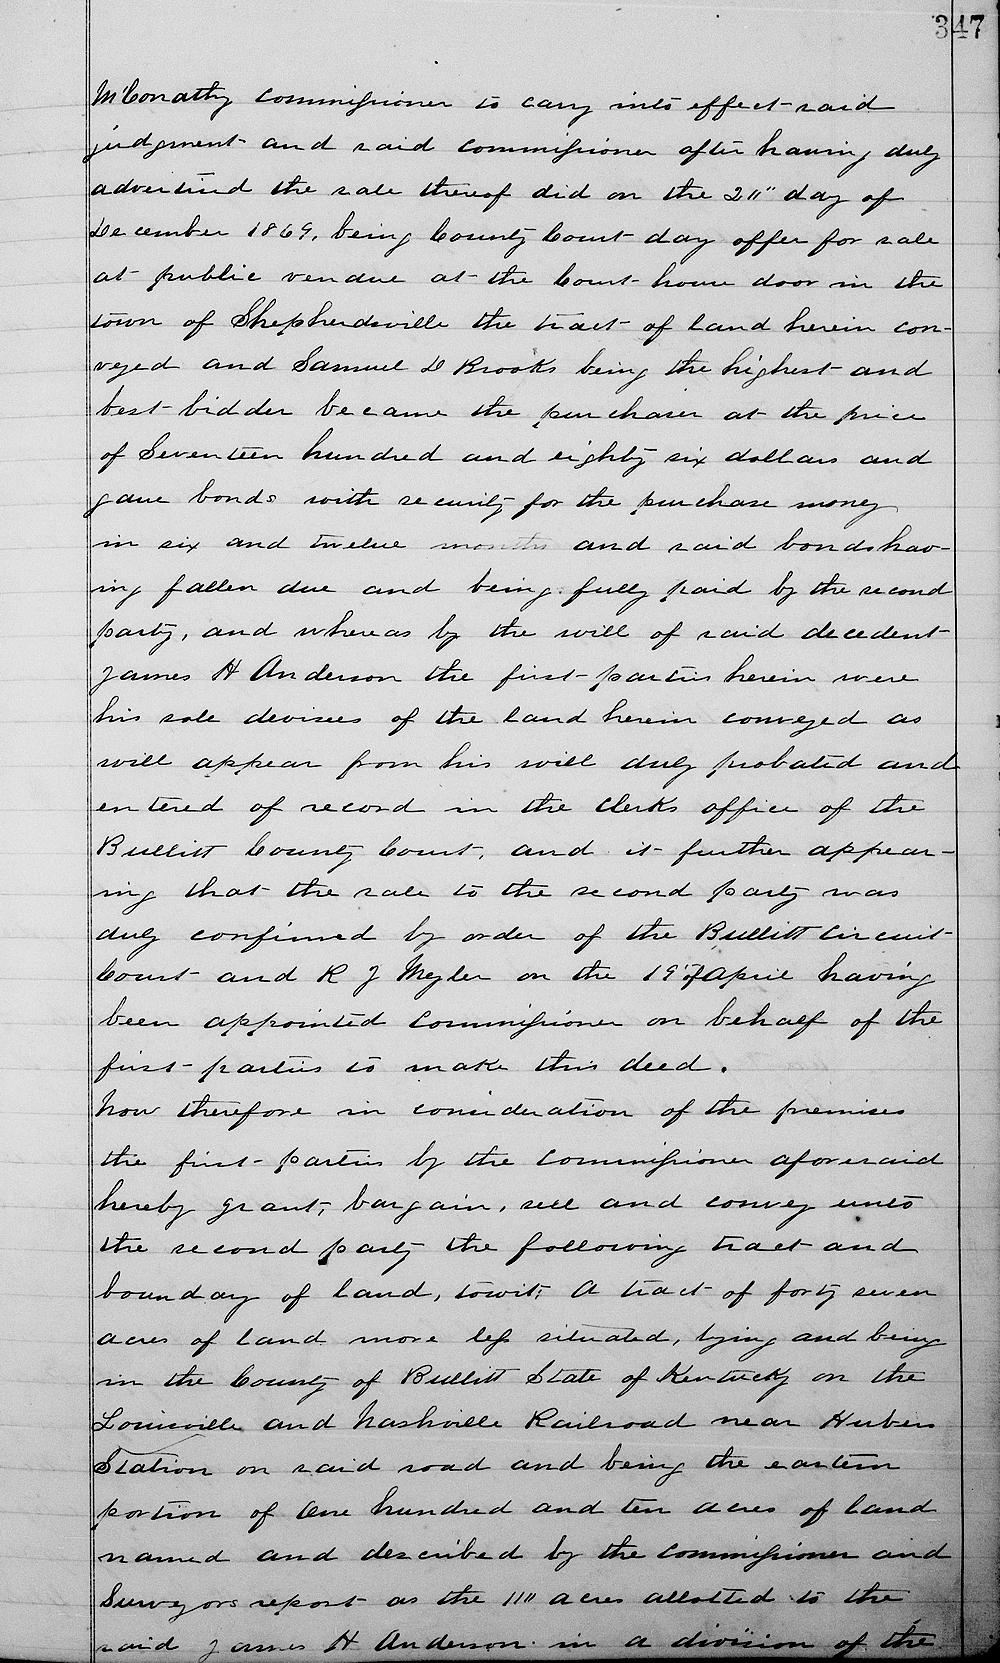 347
McConathy commissioner to carry into effect said
judgment and said commissioner after having duly
advertised the sale thereof did on the 20" day of
December 1869, being County Court day offer for sale
at public vendue at the Court house door in the
town of Shepherdsville the tract of land herein con-
veyed and Samuel D Brooks being the highest and
best bidder became the purchaser at the price
of Seventeen hundred and eighty six dollars and
gave bonds with security for the purchase money
in six and twelve months and said bonds hav-
ing fallen due and being fully paid by the second
party, and whereas by the will of said decedent
James H Anderson the first parties herein were
his sole devisees of the land herein conveyed as
will appear from his will duly probated and
entered of record in the Clerks office of the
Bullitt County Court, and it further appear-
ing that the sale to the second party was
duly confirmed by order of the Bullitt Circuit
Court and R J Meyler on the 19" of April having
been appointed Commissioner on behalf of the
first parties to make this deed.
Now therefore in consideration of the premises
the first parties by the Commissioner aforesaid
hereby grant, bargain, sell and convey unto
the second party the following tract and
bounday of land, towit; A tract of forty seven
acres of land more less situated, lying and being
in the County of Bullitt State of Kentucky on the
Louisville and Nashville Railroad near Hubers
Station on said road and being the eastern
portion of One hundred and ten acres of land
named and described by the commissioner and
Surveyors report as the 110 acres allotted to the
said James H Anderson in a division of the